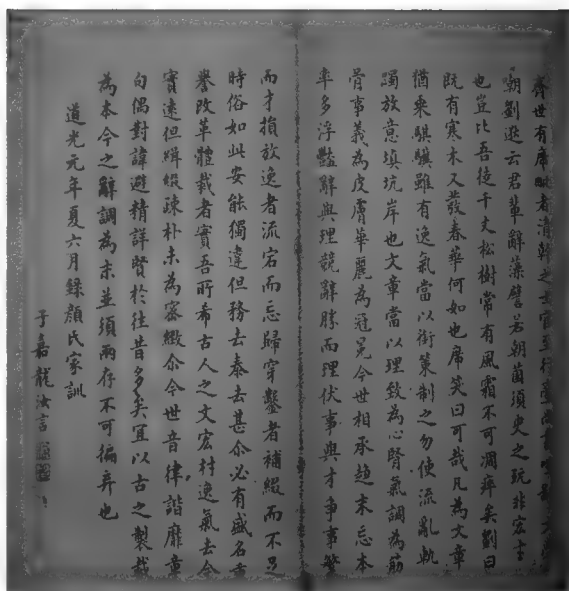 齊世有席毗者清幹之士官至行臺尚書嗤鄙文學
嘲劉逖云君輩辭藻譬若朝菌須臾之玩非宏才
也豈比吾徒千丈松樹常有風霜不可凋瘁矣劉曰
既有寒木又發春華何如也席笑曰可哉凡為文章
猶乘騏驥雖有逸氣當以銜策制之勿使流亂軌
躅放意填坑岸也文章當以理致為心腎氣調為筋
骨事義為皮膚華麗為冠冕今世相承趨末忘本
率多浮豔辭與理競辭勝而理伏事與才爭事繁
而才損放逸者流宕而忘歸穿鑿者補綴而不足
時俗如此安能獨違但務去泰去甚介必有盛名重
譽改革體裁者實吾所希古人之文宏材逸氣去今
實遠但緝綴疎朴未為密緻介今世音律諧靡章
句偶對諱避精詳賢於往昔多矣宜以古之製裁
為本今之辭調為末並須兩存不可偏弃也
道光元年夏六月錄顏氏家訓
子嘉龍汝言